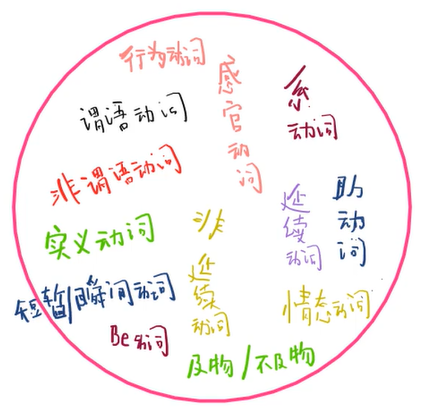 行为动词
感官动词
系动词
谓语动词
非谓语动词
延续动词
助动词
实义动词
非延续动词
短暂/瞬间动词
情态动词
Be动词
及物/不及物